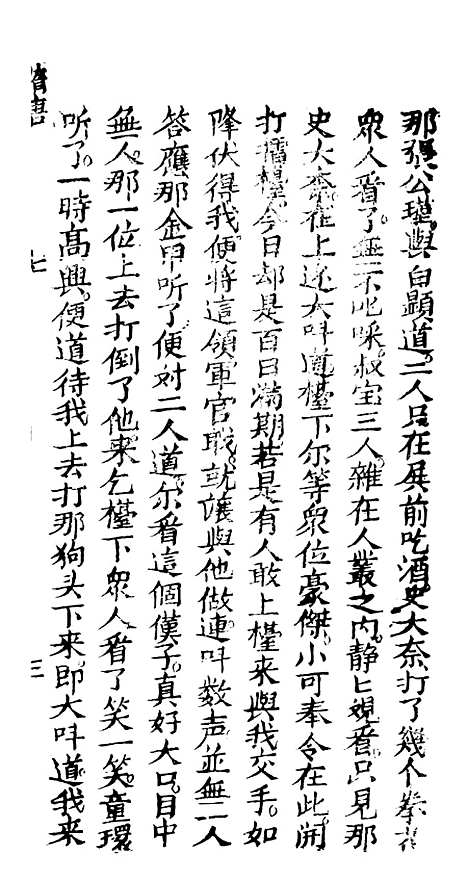 那張公瑾與白顯道二人只在展前吃酒史大奈打了幾个拳
眾人看了無不叱咤叔宝三人雜在人叢之內静匕視看只見那
史大奈在上连大呌道檯下尔等眾位豪傑小可奉令在此開
打擂檯今日却是百日滿期若是有人敢上檯来與我交手如
降伏得我便將這領軍官戢就讓與他做連呌数声並無一人
答應那金甲听了便对二人道尔看這個漢子真好大只目中
無人那一位上去打倒了他来乞檯下眾人看了笑一笑童環
听了一時高興便道待我上去打那狗头下来即大呌道我来
七
三